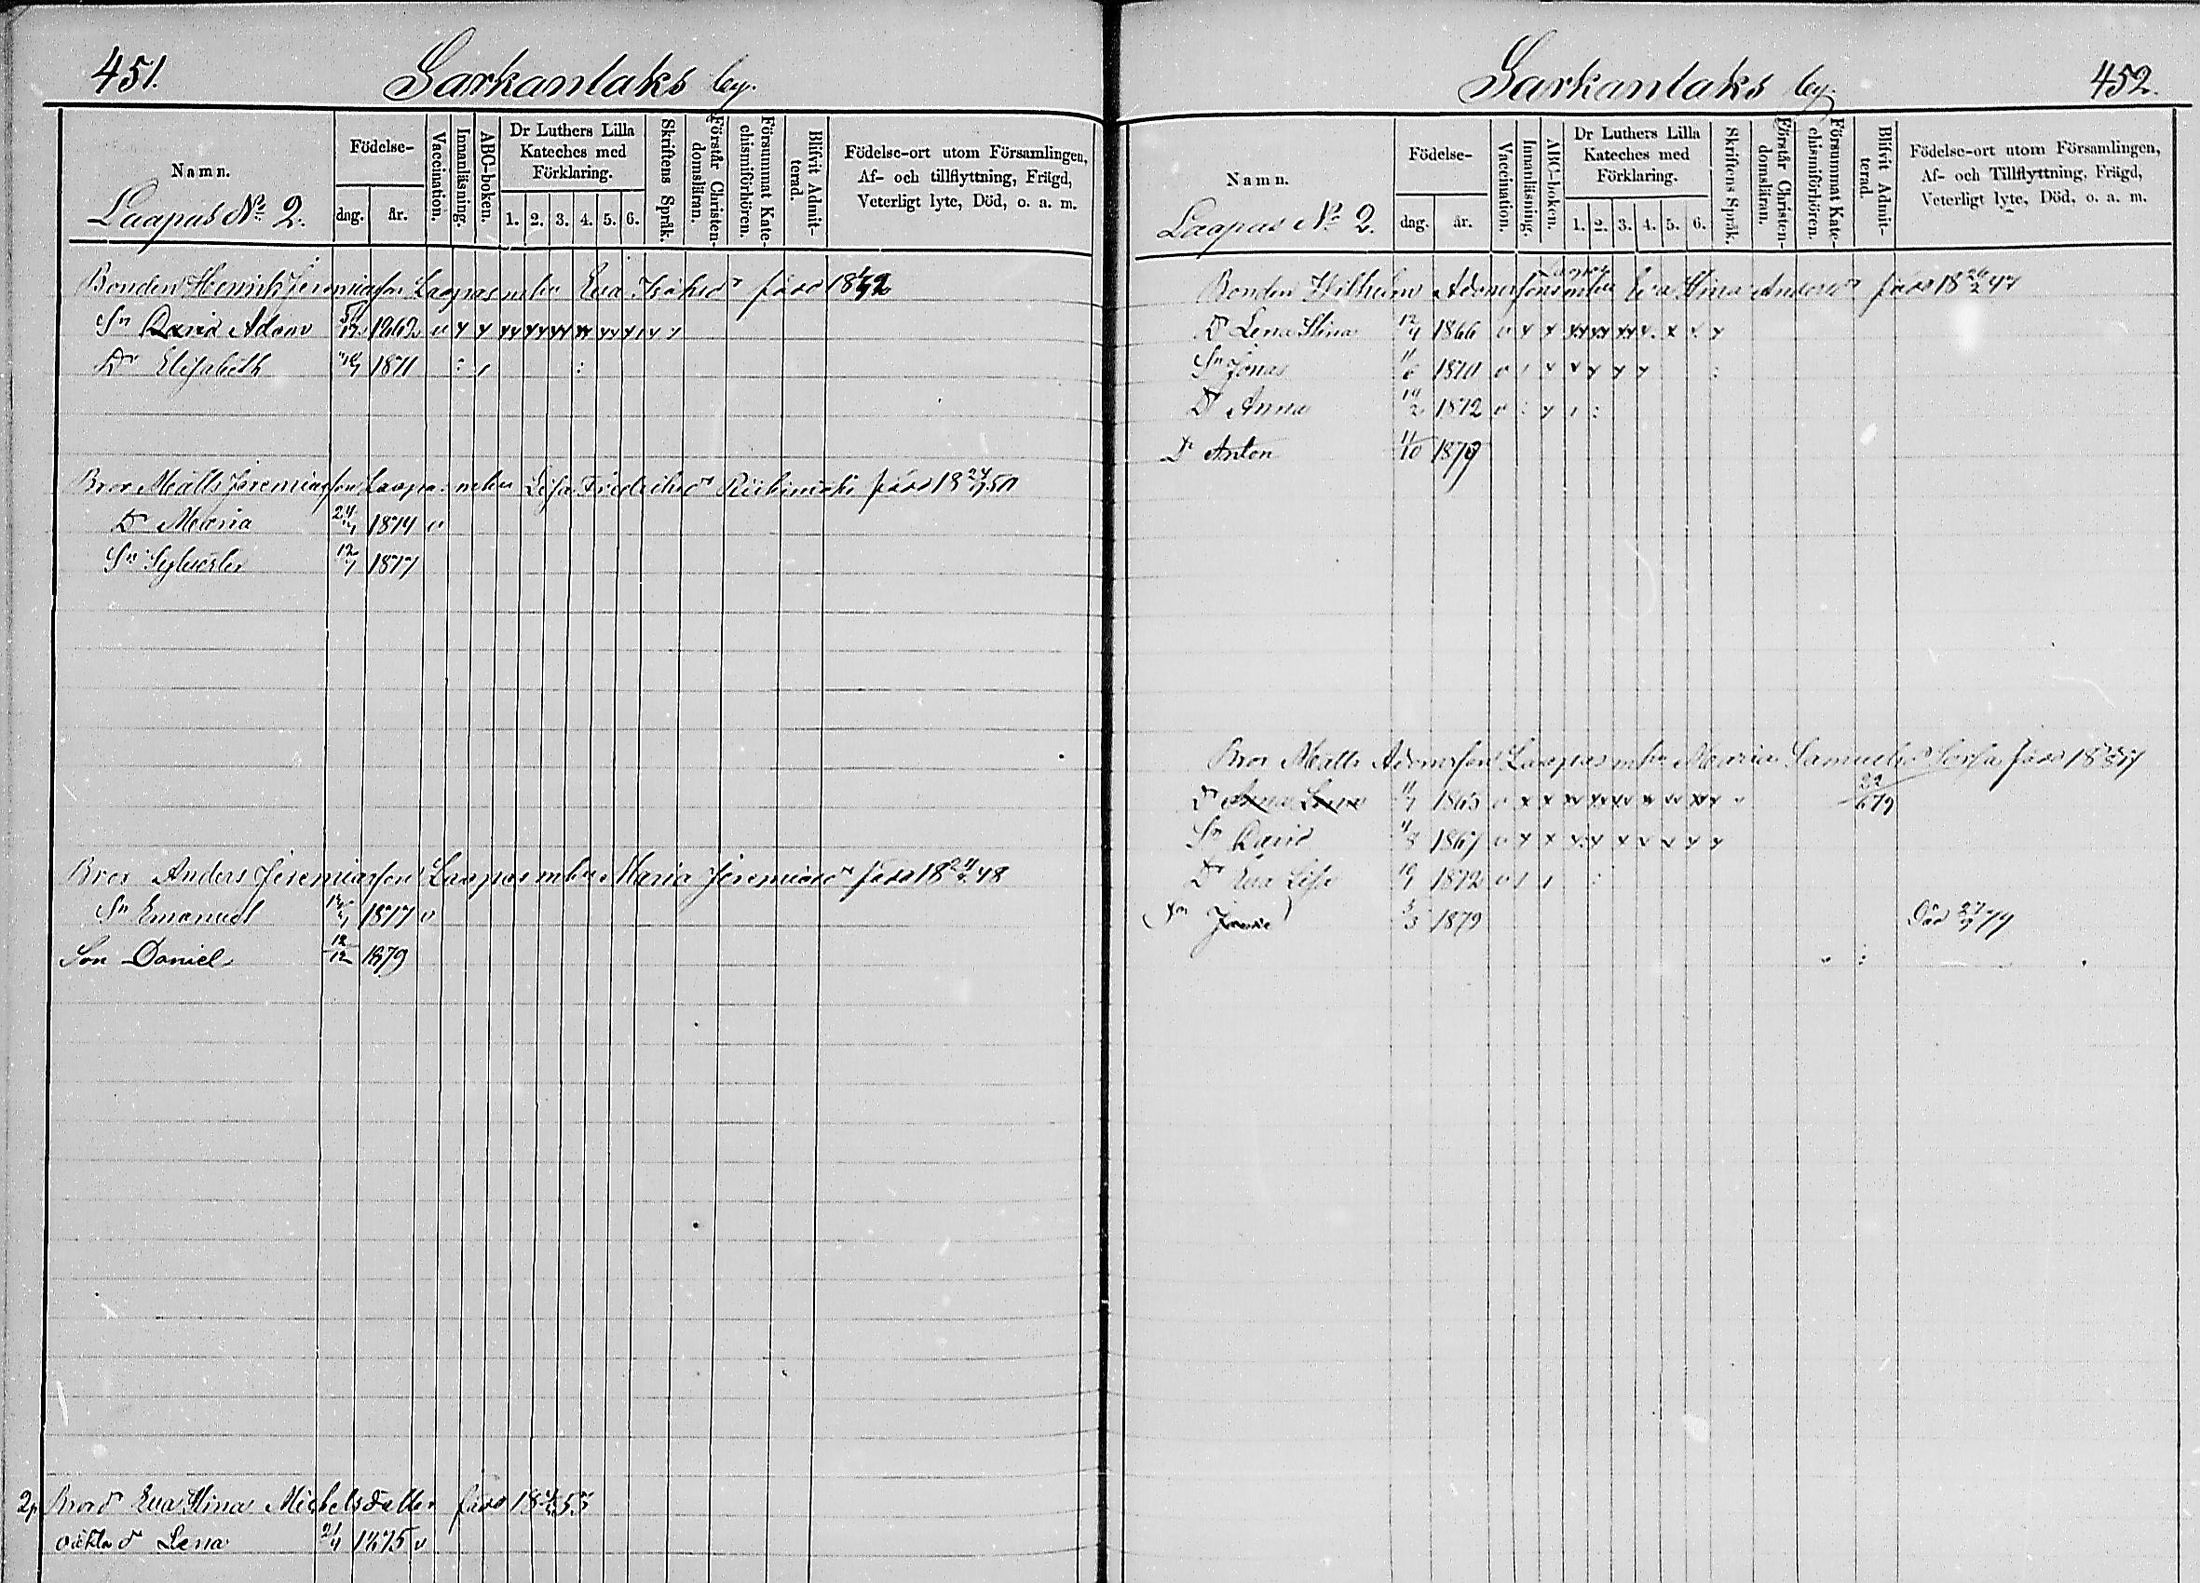 451.
Sarkanlaks by.
Namn.
Laapas No 2.
Födelse-
dag.
år.
Vaccination.
Innanläsning.
ABC-boken.
Dr Luthers Lilla
Kateches med
Förklaring.
1. 2. 3. 4. 5. 6.
Skriftens Språk.
Förstår Christen-
domsläran.
Försummat Kate-
chismiförhören.
Blifvit Admit-
terad.
Födelse-ort utom Församlingen,
Af- och tillflyttning, Frägd,
Veterligt lyte, Död, o. a. m.
Bonden Henrik Jeremiasson Laapas m hu Eva född
Sn David Adam 1862 v
Dr Elisabeth 1871
Bror Matts Jeremiasson Laapas m hu Lisa Fredriksdr född
Dr Maria 24/ 1874 v
Sn Sylvester 12/ 1877
Bror Anders Jeremiasson Laapas m hu Maria Jeremiasdr född 48
Sn Emanuel 1877 v
Son Daniel 12/12 1879
2p. Eva Stina Michelsdotter född 53
oäkta dr Lena 2/4 1875 v
452.
Sarkanlaks by.
Namn.
Laapas No 2.
Födelse-
dag.
år.
Vaccination.
Innanläsning.
ABC-boken.
Dr Luthers Lilla
Kateches med
Förklaring.
1. 2. 3. 4. 5. 6.
Skriftens Språk.
Förstår Christen-
domsläran.
Försummat Kate-
chismiförhören.
Blifvit Admit-
terad.
Födelse-ort utom Församlingen,
Af- och Tillflyttning, Frägd,
Veterligt lyte, Död, o. a. m.
Bonden Wilhelm Adamsson m hu Eva Stina Andersdr född 47
Dr Lena Stina 12/4 1866 v
Sn Jonas 1870 v
Dr Anna 19/2 1872 v
Dr Anton 11/10 1879
Bror Matts Adamsson Laapas m hu Maria Samuelsdr född
Dr Anna Lena 1865 v 22/6 79
Sn David 1867 v
Dr Eva Lisa 1872 v
Sn 3/3 1879 Död 79